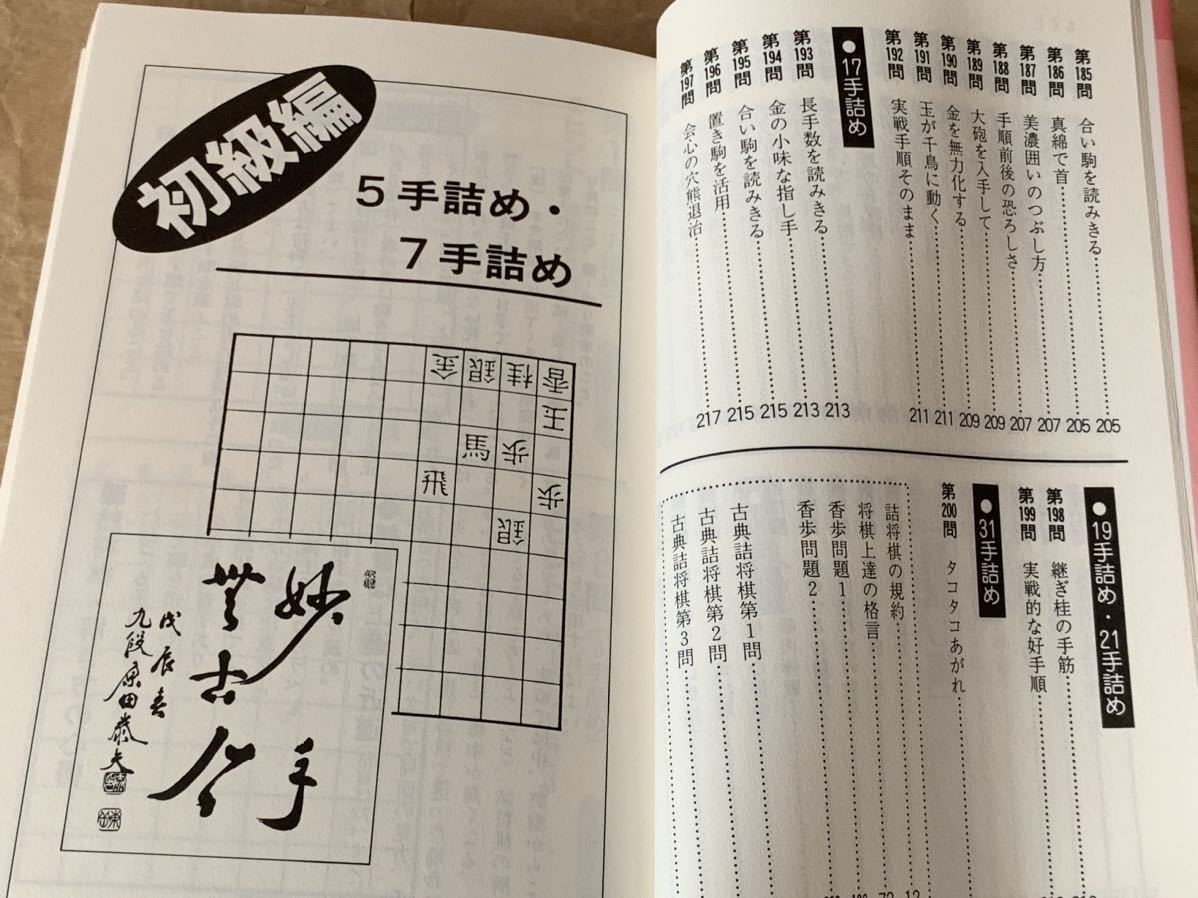 第185問 合い駒を読みきる 205
第186問 真綿で首 205
第187問 美濃囲いのつぶし方 207
第188問 手順前後の恐ろしさ 207
第189問 大砲を入手して 209
第190問 金を無力化する 209
第191問 玉が千鳥に動く 211
第192問 実戦手順そのまま 211
●17手詰め
第193問 長手数を読みきる 213
第194問 金の小味な指し手 213
第195問 合い駒を読みきる 215
第196問 置き駒を活用 215
第197問 会心の穴熊退治 217
●19手詰め・21手詰め
第198問 継ぎ桂の手筋
第199問 実戦的な好手順
●31手詰め
第200問 タコタコあがれ
詰将棋の規約
将棋上達の格言
香歩問題1
香歩問題2
古典詰将棋第1問
古典詰将棋第2問
古典詰将棋第3問
初級編
5手詰め・
7手詰め
金銀桂香
王
馬歩
飛歩
銀
妙手
無古今
戊辰春
九段原田泰夫